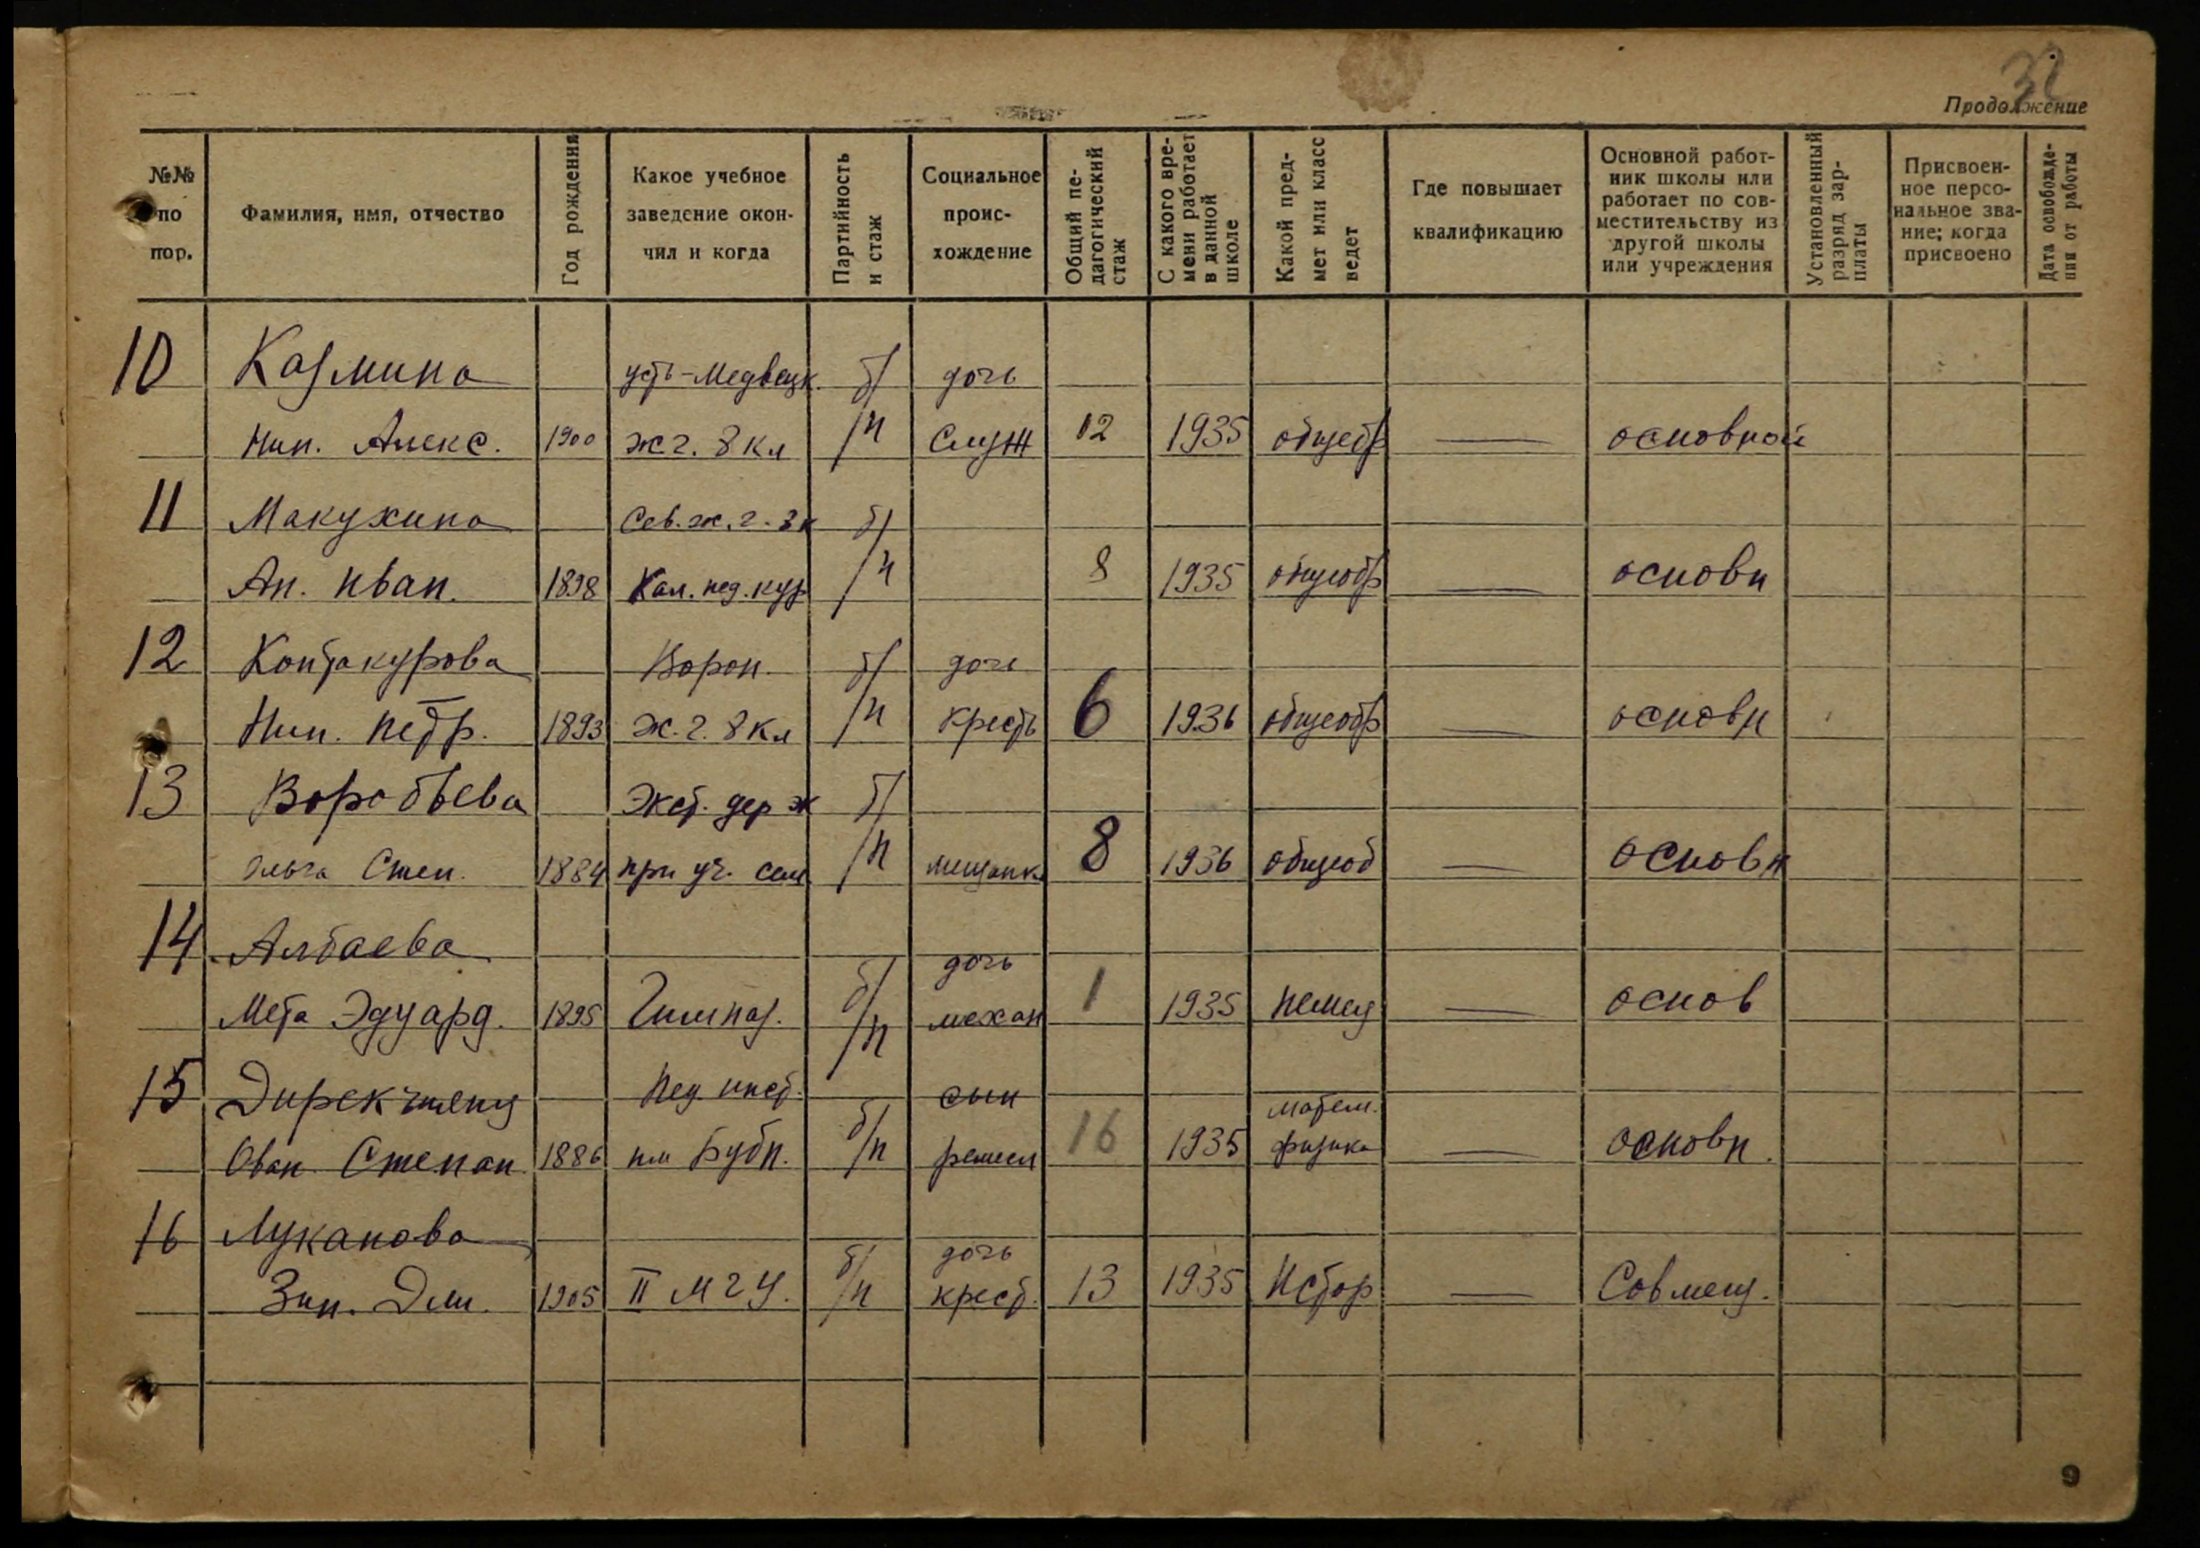 32
Продолжение
№№ по пор.
Фамилия, имя, отчество
Год рождения
Какое учебное заведение окон-чил и когда
Партийность и стаж
Социальное проис-хождение
Общий пе-дагогический стаж
С какого вре-мени работает в данной школе
Какой пред-мет или класс ведет
Где повышает квалификацию
Основной работ-ник школы или работает по сов-местительству из другой школы или учреждения
Установленный разряд зар-платы
Присвоен-ное персо-нальное зва-ние; когда присвоено
Дата освобожде-ния от работы
10 Казмина усть-Медвецк. б/ дочь
Нин. Алекс. 1900 ж г. 8 кл /п служ 12 1935 общеобр — основной
11 Макухина Сев. ж. г. 8 к б/
Ан. Иван. 1898 Кал. пед. кур /п 8 1935 общеобр — основн
12 Контакурова Ворон. б/ дочь
Нин. Петр. 1893 ж. г. 8 кл /п кресть 6 1936 общеобр — основн
13 Воробьева Экст. держ б/
Ольга Степ. 1884 при уч. сем /п мещанк. 8 1936 общеоб — основн
14 Албаева дочь
Мета Эдуард. 1895 Гимназ. б/п механ 1 1935 немец — основ
15 Пед. инст. сын матем.
Ован. Степан 1886 им Бубн. б/п ремесл 16 1935 физика — основн.
16 Луканова дочь
Зин. Дми. 1905 II М Г У. б/п крест. 13 1935 Истор — Совмещ.
9